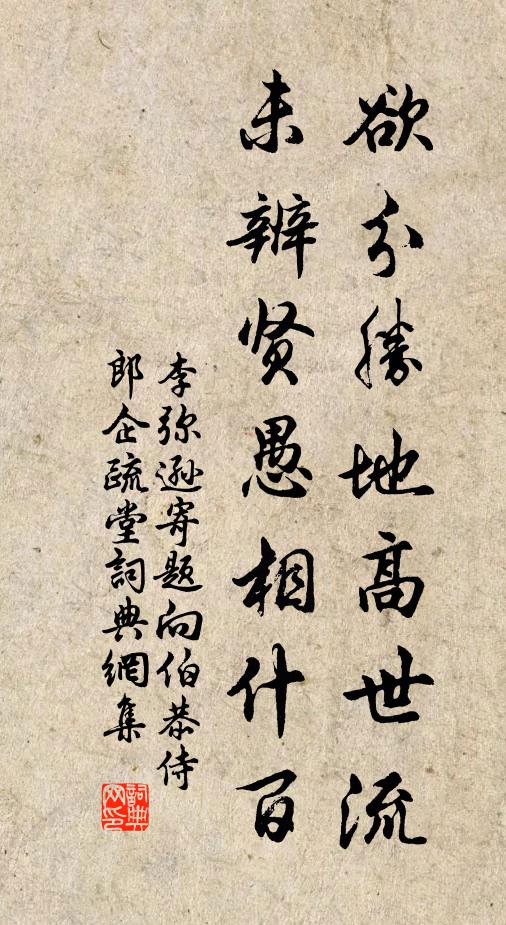 欲分勝地高世流
未辨贤愚相什百
李弥遜寄题向伯恭侍
郎企疏堂詞典網集
詞典网印